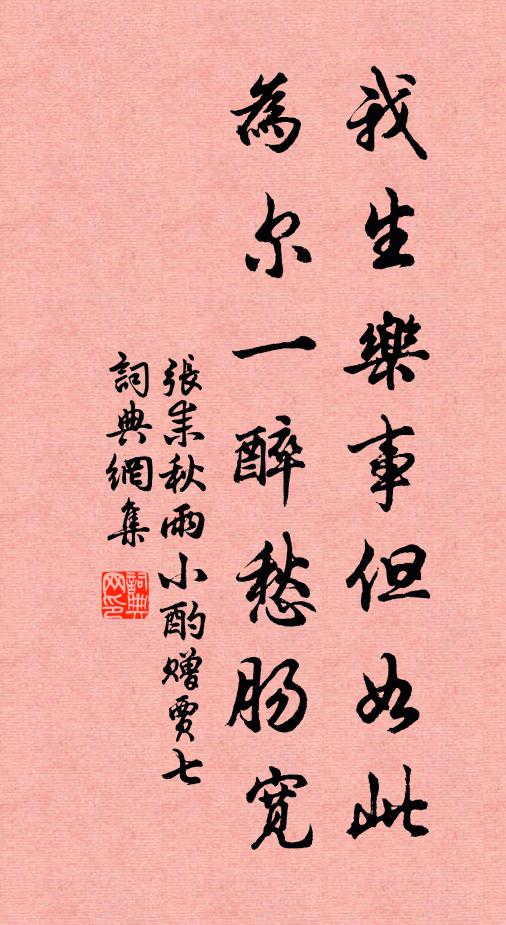 我生樂事但如此
為尔一醉愁肠寬
張耒秋雨小酌贈賈七
詞典網集
詞典网印